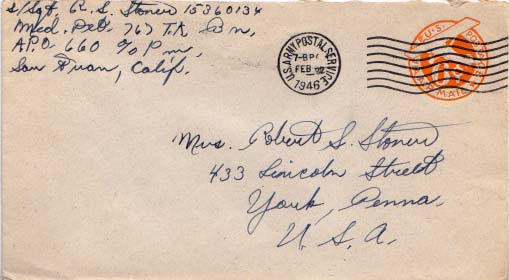 S/Sgt. R. S. Stoner 15360134
Med. Det. 767 T.K. Bn.
APO 660 % P.m.
San Fran, Calif.
U.S. ARMY POSTAL SERVICE
7-BPO
FEB
1946
U.S. POSTAGE
AIR MAIL
Mrs. Robert S. Stoner
433 Lincoln Street
York, Penna.
U. S. A.